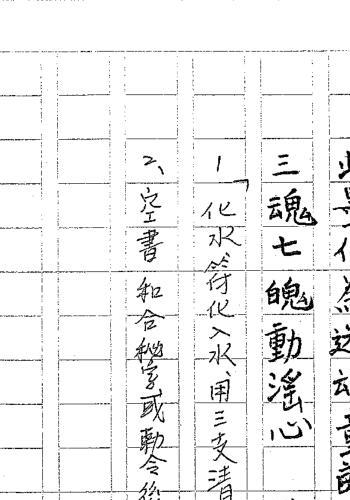 三魂七魄動滛心
1、化水符化入水、用三支清
2、空書和合秘字或勅令後